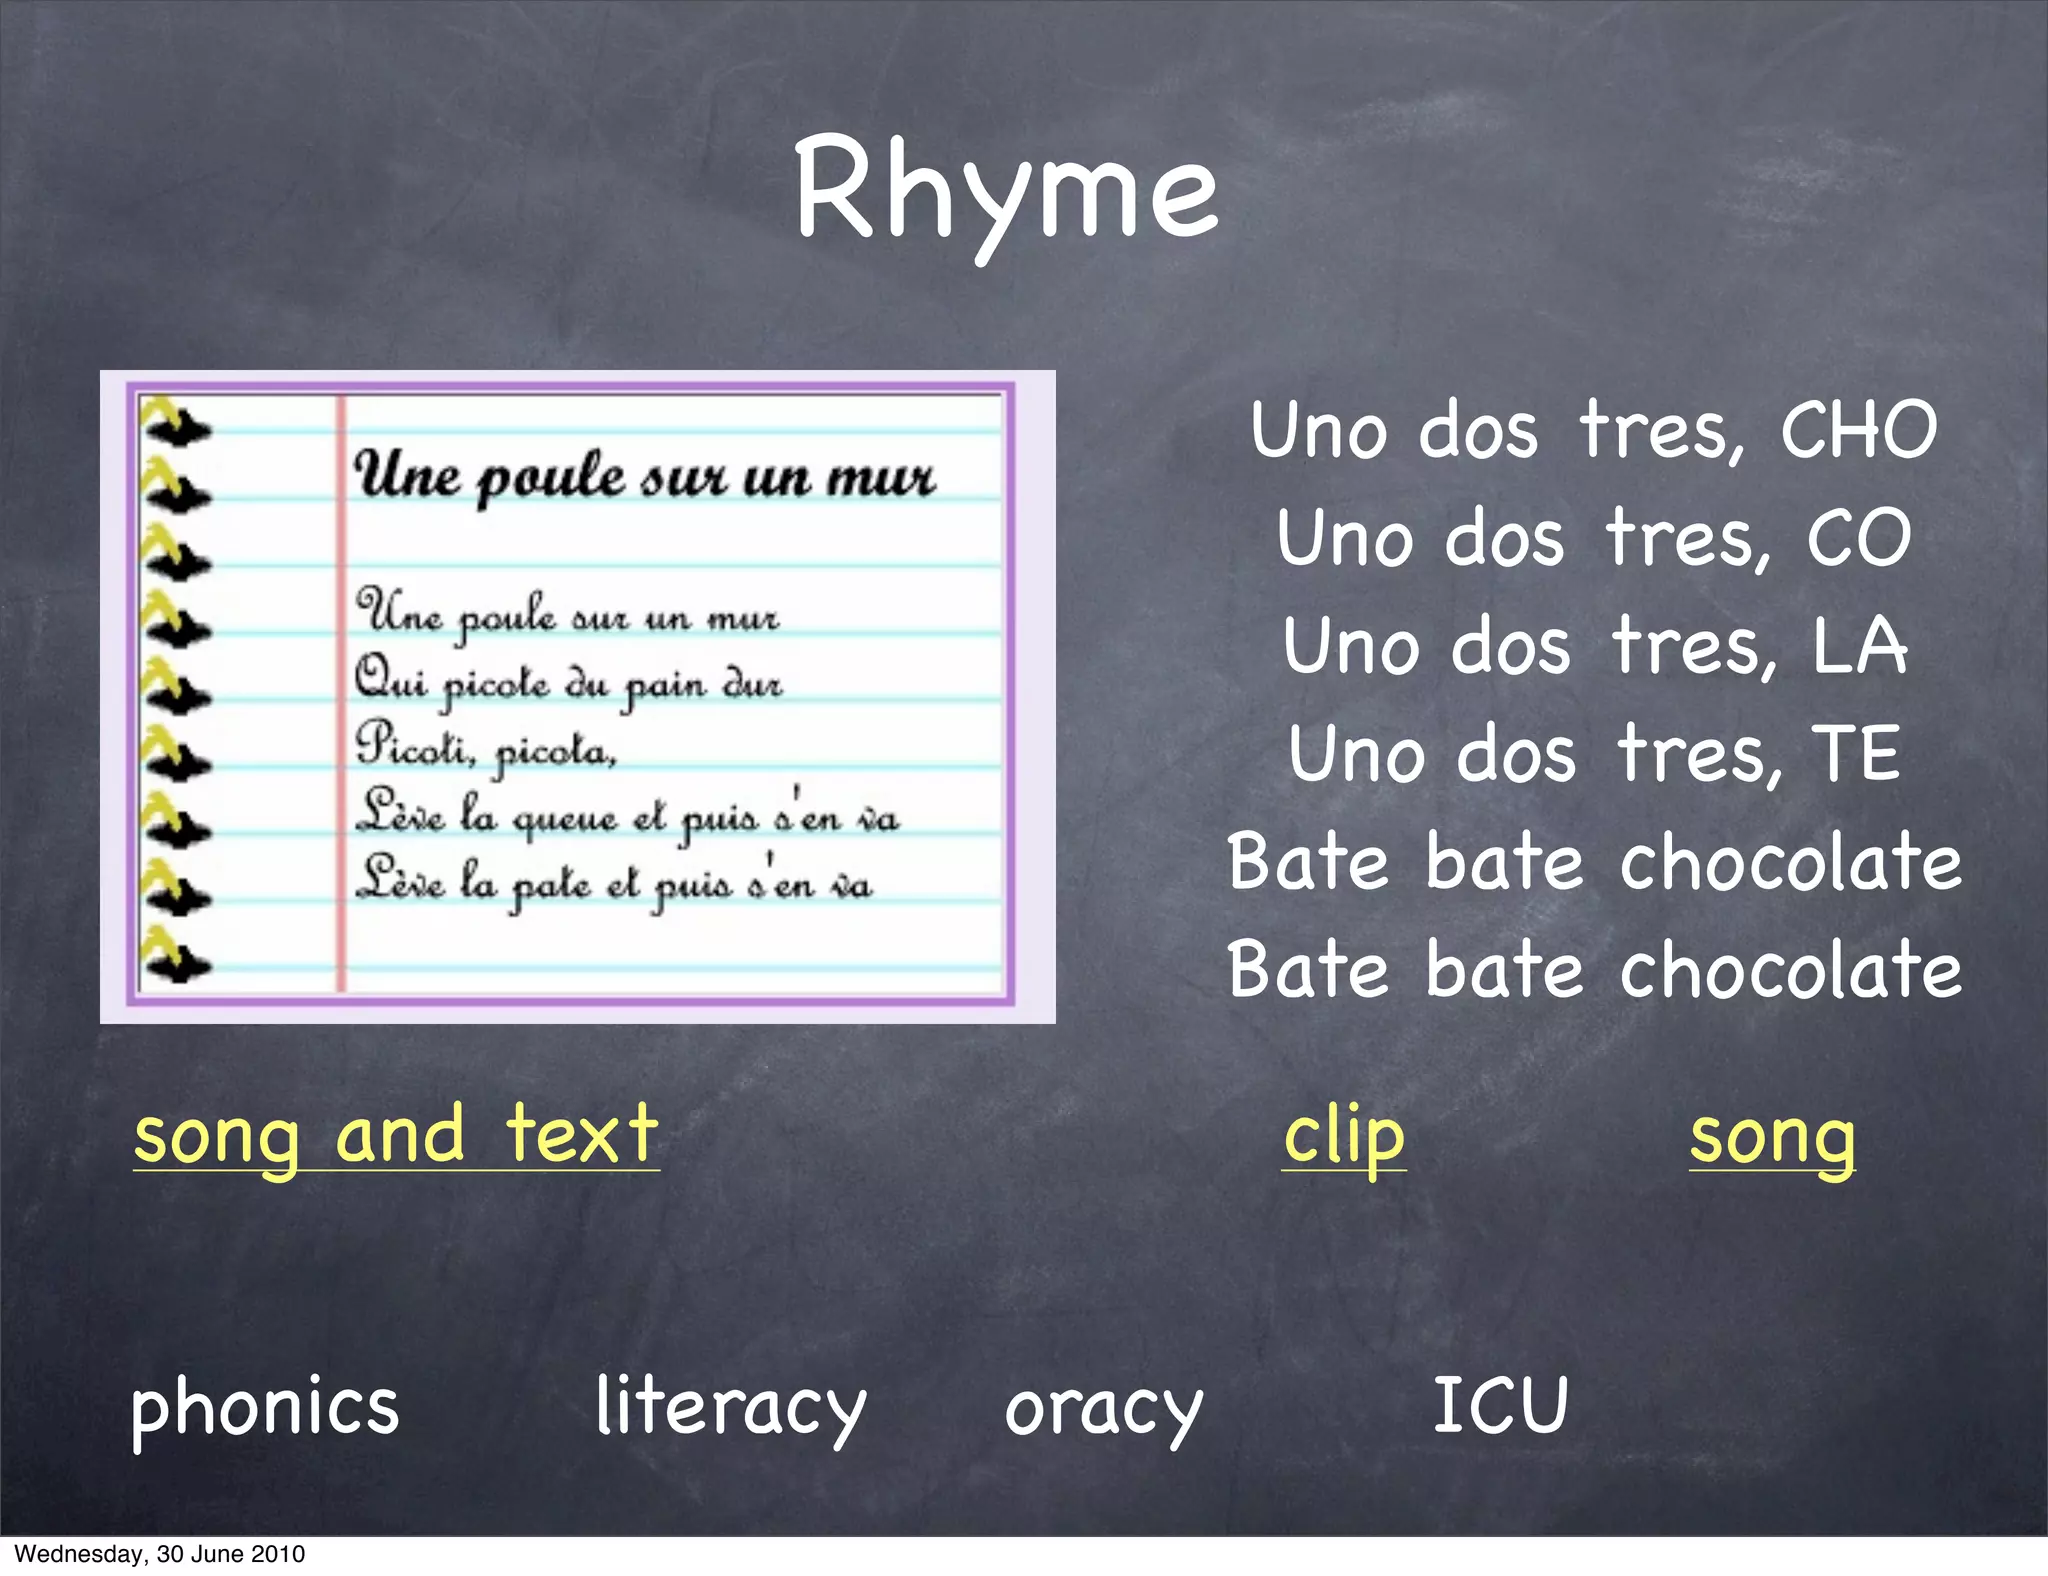 Rhyme
Une poule sur un mur
Une poule sur un mur
Qui picote du pain dur
Picoti, picota,
Lève la queue et puis s'en va
Lève la pate et puis s'en va
Uno dos tres, CHO
Uno dos tres, CO
Uno dos tres, LA
Uno dos tres, TE
Bate bate chocolate
Bate bate chocolate
song and text
clip
song
phonics
literacy
oracy
ICU
Wednesday, 30 June 2010